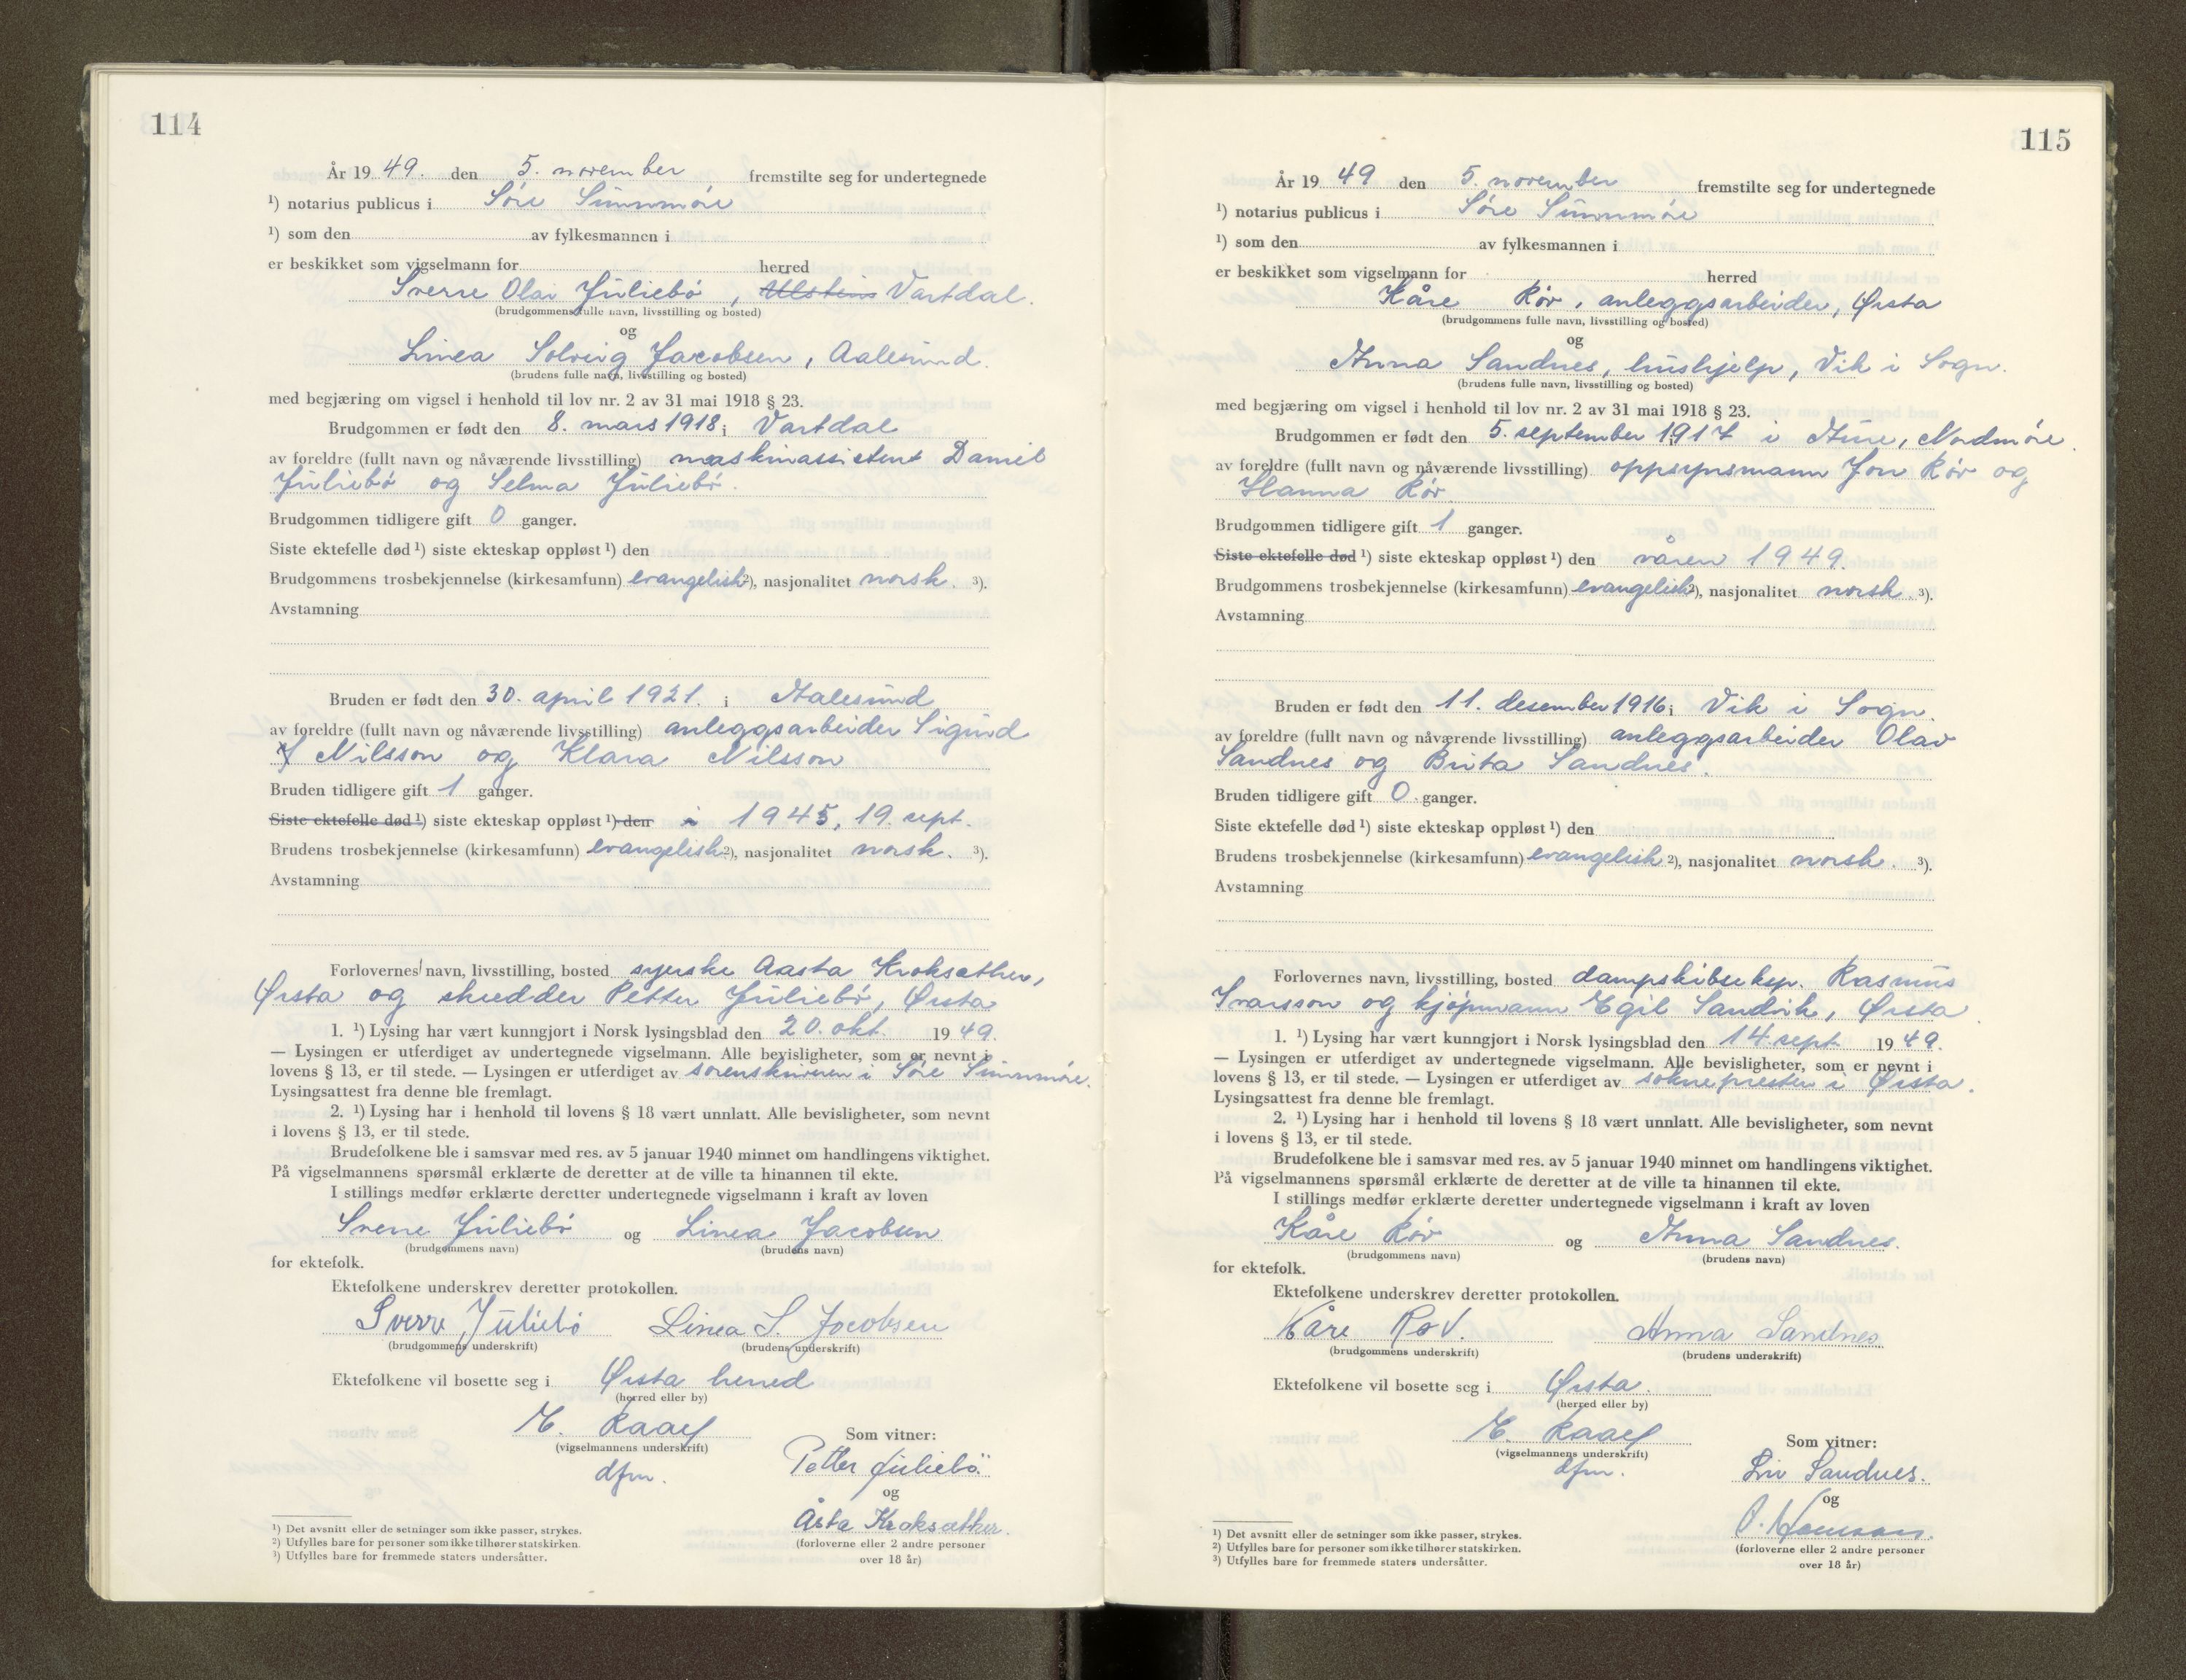 114
År 1949. den 5. november fremstilte seg for undertegnede
¹) notarius publicus i Søre Sunnmøre
¹) som den av fylkesmannen i
er beskikket som vigselmann for herred
Sverre Olai Juliebø, Ulstein Vartdal.
(brudgommens fulle navn, livsstilling og bosted)
og
Linea Solveig Jacobsen, Aalesund.
(brudens fulle navn, livsstilling og bosted)
med begjæring om vigsel i henhold til lov nr. 2 av 31 mai 1918 § 23.
Brudgommen er født den 8. mars 1918 i Vartdal
av foreldre (fullt navn og nåværende livsstilling) maskinassistent Daniel
Juliebø og Selma Juliebø.
Brudgommen tidligere gift 0 ganger.
Siste ektefelle død ¹) siste ekteskap oppløst ¹) den
Brudgommens trosbekjennelse (kirkesamfunn) evangelisk ²), nasjonalitet norsk. ³).
Avstamning
Bruden er født den 30. april 1921. i Aalesund
av foreldre (fullt navn og nåværende livsstilling) anleggsarbeider Sigurd
Nilsson og Klara Nilsson
Bruden tidligere gift 1 ganger.
Siste ektefelle død ¹) siste ekteskap oppløst ¹) den i 1945, 19. sept.
Brudens trosbekjennelse (kirkesamfunn) evangelisk ²), nasjonalitet norsk. ³).
Avstamning
Forlovernes navn, livsstilling, bosted syerske Aasta Kroksæther,
Ørsta og skredder Petter Juliebø, Ørsta
1. ¹) Lysing har vært kunngjort i Norsk lysingsblad den 20. okt. 1949.
— Lysingen er utferdiget av undertegnede vigselmann. Alle bevisligheter, som er nevnt i
lovens § 13, er til stede. — Lysingen er utferdiget av sorenskriveren i Søre Sunnmøre.
Lysingsattest fra denne ble fremlagt.
2. ¹) Lysing har i henhold til lovens § 18 vært unnlatt. Alle bevisligheter, som nevnt
i lovens § 13, er til stede.
Brudefolkene ble i samsvar med res. av 5 januar 1940 minnet om handlingens viktighet.
På vigselmannens spørsmål erklærte de deretter at de ville ta hinannen til ekte.
I stillings medfør erklærte deretter undertegnede vigselmann i kraft av loven
Sverre Juliebø og Linea Jacobsen
(brudgommens navn) (brudens navn)
for ektefolk.
Ektefolkene underskrev deretter protokollen.
Sverre Juliebø Linea S. Jacobsen
(brudgommens underskrift) (brudens underskrift)
Ektefolkene vil bosette seg i Ørsta herred
(herred eller by)
E. Kaarf
(vigselmannens underskrift)
dfm.
Som vitner:
Petter Juliebø
og
Åsta Kroksæther.
(forloverne eller 2 andre personer
over 18 år)
¹) Det avsnitt eller de setninger som ikke passer, strykes.
²) Utfylles bare for personer som ikke tilhører statskirken.
³) Utfylles bare for fremmede staters undersåtter.
115
År 1949 den 5. november fremstilte seg for undertegnede
¹) notarius publicus i Søre Sunnmøre
¹) som den av fylkesmannen i
er beskikket som vigselmann for herred
Kåre Røv, anleggsarbeider, Ørsta
(brudgommens fulle navn, livsstilling og bosted)
og
Anna Sandnes, hushjelp, Vik i Sogn.
(brudens fulle navn, livsstilling og bosted)
med begjæring om vigsel i henhold til lov nr. 2 av 31 mai 1918 § 23.
Brudgommen er født den 5. september 1917 i Aure, Nordmøre.
av foreldre (fullt navn og nåværende livsstilling) oppsynsmann Jon Røv og
Hanna Røv.
Brudgommen tidligere gift 1 ganger.
Siste ektefelle død ¹) siste ekteskap oppløst ¹) den våren 1949.
Brudgommens trosbekjennelse (kirkesamfunn) evangelisk ²), nasjonalitet norsk. ³).
Avstamning
Bruden er født den 11. desember 1916 i Vik i Sogn.
av foreldre (fullt navn og nåværende livsstilling) anleggsarbeider Olav
Sandnes og Brita Sandnes.
Bruden tidligere gift 0. ganger.
Siste ektefelle død ¹) siste ekteskap oppløst ¹) den
Brudens trosbekjennelse (kirkesamfunn) evangelisk ²), nasjonalitet norsk. ³).
Avstamning
Forlovernes navn, livsstilling, bosted dampskibseksp. Rasmus
Ivarsson og kjøpmann Egil Sandvik, Ørsta.
1. ¹) Lysing har vært kunngjort i Norsk lysingsblad den 14. sept. 1949.
— Lysingen er utferdiget av undertegnede vigselmann. Alle bevisligheter, som er nevnt i
lovens § 13, er til stede. — Lysingen er utferdiget av sokneprestem i Ørsta.
Lysingsattest fra denne ble fremlagt.
2. ¹) Lysing har i henhold til lovens § 18 vært unnlatt. Alle bevisligheter, som nevnt
i lovens § 13, er til stede.
Brudefolkene ble i samsvar med res. av 5 januar 1940 minnet om handlingens viktighet.
På vigselmannens spørsmål erklærte de deretter at de ville ta hinannen til ekte.
I stillings medfør erklærte deretter undertegnede vigselmann i kraft av loven
Kåre Røv og Anna Sandnes.
(brudgommens navn) (brudens navn)
for ektefolk.
Ektefolkene underskrev deretter protokollen.
Kåre Røv. Anna Sandnes
(brudgommens underskrift) (brudens underskrift)
Ektefolkene vil bosette seg i Ørsta.
(herred eller by)
E. Kaarf
(vigselmannens underskrift)
dfm.
Som vitner:
Liv Sandnes.
og
(forloverne eller 2 andre personer
over 18 år)
¹) Det avsnitt eller de setninger som ikke passer, strykes.
²) Utfylles bare for personer som ikke tilhører statskirken.
³) Utfylles bare for fremmede staters undersåtter.